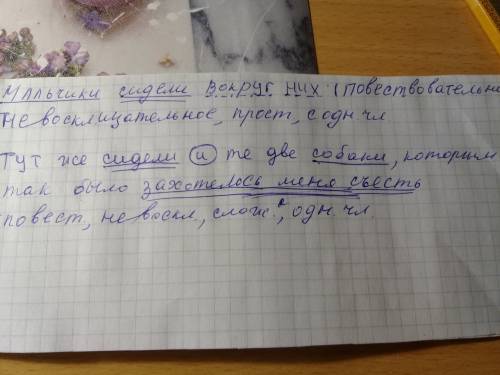 Мальчики сидели вокруг них (повествовательно
невосклицательное, прост, с одн чл
Тут же сидели и те две собаки, которым
так было захотелось меня съесть
повест, невоскл, сложн, одн. чл.